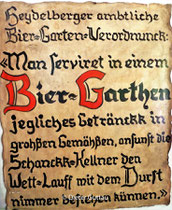 Heydelberger ambtliche
Bier=Garten=Verordnunck:
«Man serviret in einem
Bier=Garthen
jegliches Getränckk in
großßen Gemäßßen, ansunst die
Schanckk=Kellner den
Wett=Lauff mit dem Durst
nimmer können.»